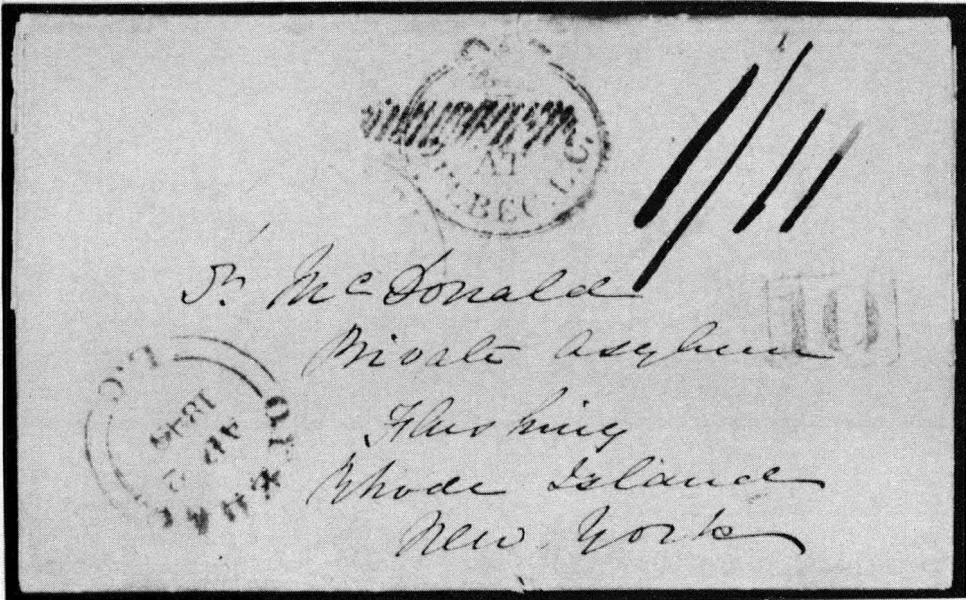 AT
QUEBEC. L.C.
1/11
Dr McDonald
Private Asylum
Flushing
Rhode Island
New York
QUEBEC
L.C.